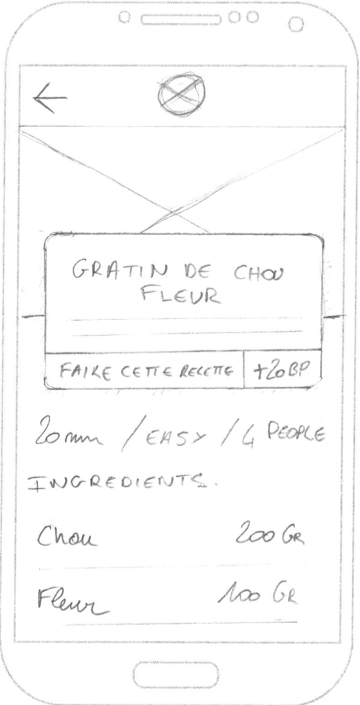 GRATIN DE CHOU
FLEUR
FAIRE CETTE RECETTE +20BP
20mn / EASY / 4 PEOPLE
INGREDIENTS.
Chou 200 GR
Fleur 100 GR